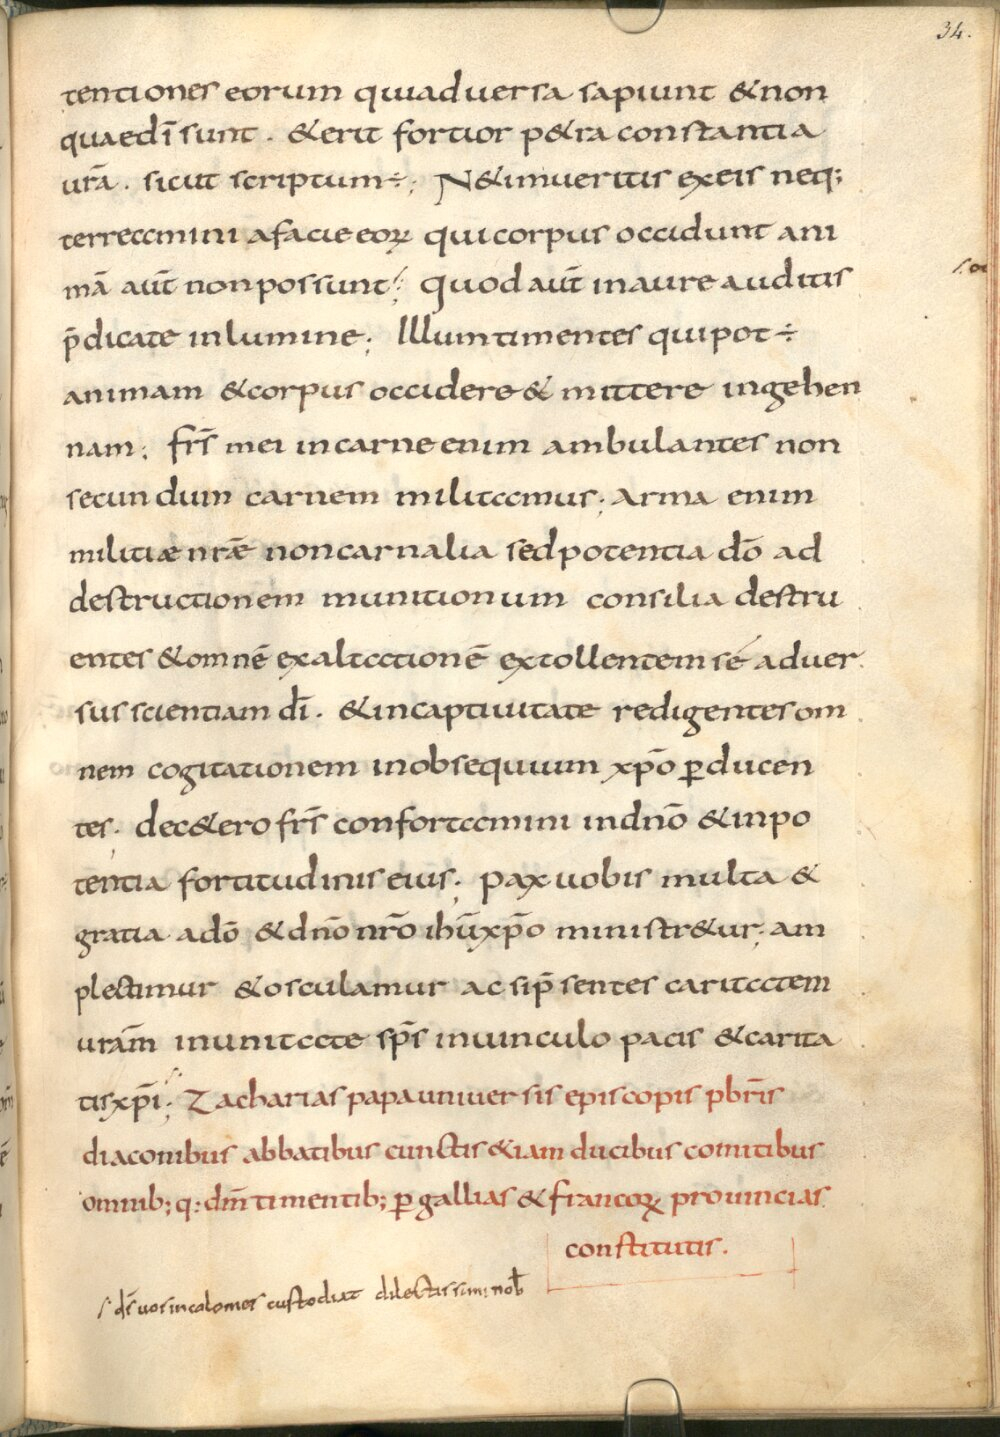 34.
tentiones eorum qui aduersa sapiunt & non
quae dī sunt. & erit fortior p&ra constantia
urā. sicut scriptum ÷; N& imueritis ex eis neq;
terreamini a facie eoꝝ qui corpus occidunt ani
mā aūt non possunt; quod aūt in aure auditis
p̄dicate in lumine; Illum timentes qui pot÷
animam & corpus occidere & mittere in gehen
nam; frs̄ mei in carne enim ambulantes non
secundum carnem militamus; arma enim
militiæ nrǣ non carnalia sed potentia dō ad
destructionem munitionum consilia destru
entes & omnē exaltationē extollentem sé aduer
sus scientiam dī. & in captiuitate redigentes om
nem cogitationem in obsequium xp̄o ꝑducen
tes; dec&ero frs̄ confortamini in dn̄o & in po
tentia fortitudinis eius; pax uobis multa &
gratia a dō & dn̄o nr̄o ihū xp̄o ministr&ur; am
plectimur & osculamur ac si p̄sentes caritatem
uram̄ in unitate sp̄s in uinculo pacis & carita
tis xp̄i; Zacharias papa uniuersis episcopis pbr̄is
diaconibus abbatibus cunctis &iam ducibus comitibus
omnib; q: dm̄ timentib; ꝑ gallias & francoꝝ prouincias
constitutis.
s. ds̄ uos incolomes custodiat dilectissimi nob̄